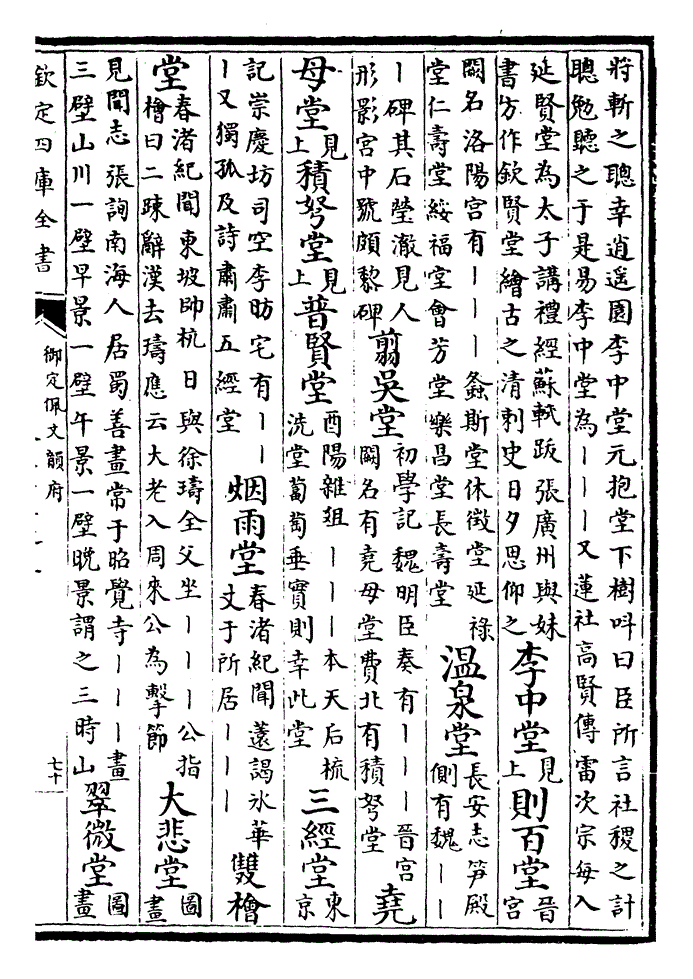 將斬之聰幸逍遥園李中堂元抱堂下樹呌曰臣所言社稷之計
聰勉聽之于是易李中堂為丨丨丨又蓮社高賢傳雷次宗每入
延賢堂為太子講禮經蘇軾跋張廣州與妹
書方作欽賢堂繪古之清刺史日夕思仰之
李中堂
見
上
則百堂
晉
宮
闕名洛陽宮有丨丨丨螽斯堂休徵堂延祿
堂仁壽堂綏福堂會芳堂樂昌堂長壽堂
温泉堂
長安志笋殿
側有魏丨丨
丨碑其石瑩澈見人
形影宮中號頗黎碑
翦吳堂
初學記魏明臣奏有丨丨丨晉宮
闕名有堯母堂費北有積弩堂
堯
母堂
見
上
積弩堂
見
上
普賢堂
酉陽雜俎丨丨丨本天后梳
洗堂蔔萄垂實則幸此堂
三經堂
東
京
記崇慶坊司空李昉宅有丨丨
丨又獨孤及詩肅肅五經堂
烟雨堂
春渚紀聞薳謁氷華
丈于所居丨丨丨
雙檜
堂
春渚紀聞東坡帥杭日與徐璹全父坐丨丨丨公指
檜曰二踈辭漢去璹應云大老入周來公為擊節
大悲堂
圖
畫
見聞志張詢南海人居蜀善畫常于昭覺寺丨丨丨畫
三壁山川一壁早景一壁午景一壁晚景謂之三時山
翠微堂
圖
畫
欽定四庫全書
御定佩文韻府
七十